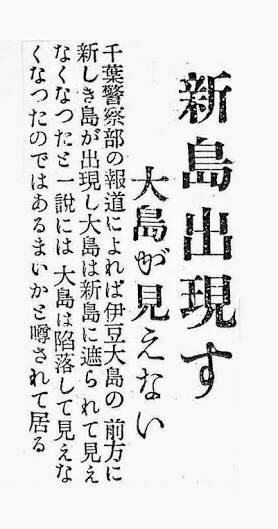 新島出現す
大島が見えない
千葉警察部の報道によれば伊豆大島の前方に
新しき島が出現し大島は新島に遮られて見え
なくなつたと一說には大島は陷落して見えな
くなつたのではあるまいかと噂されて居る